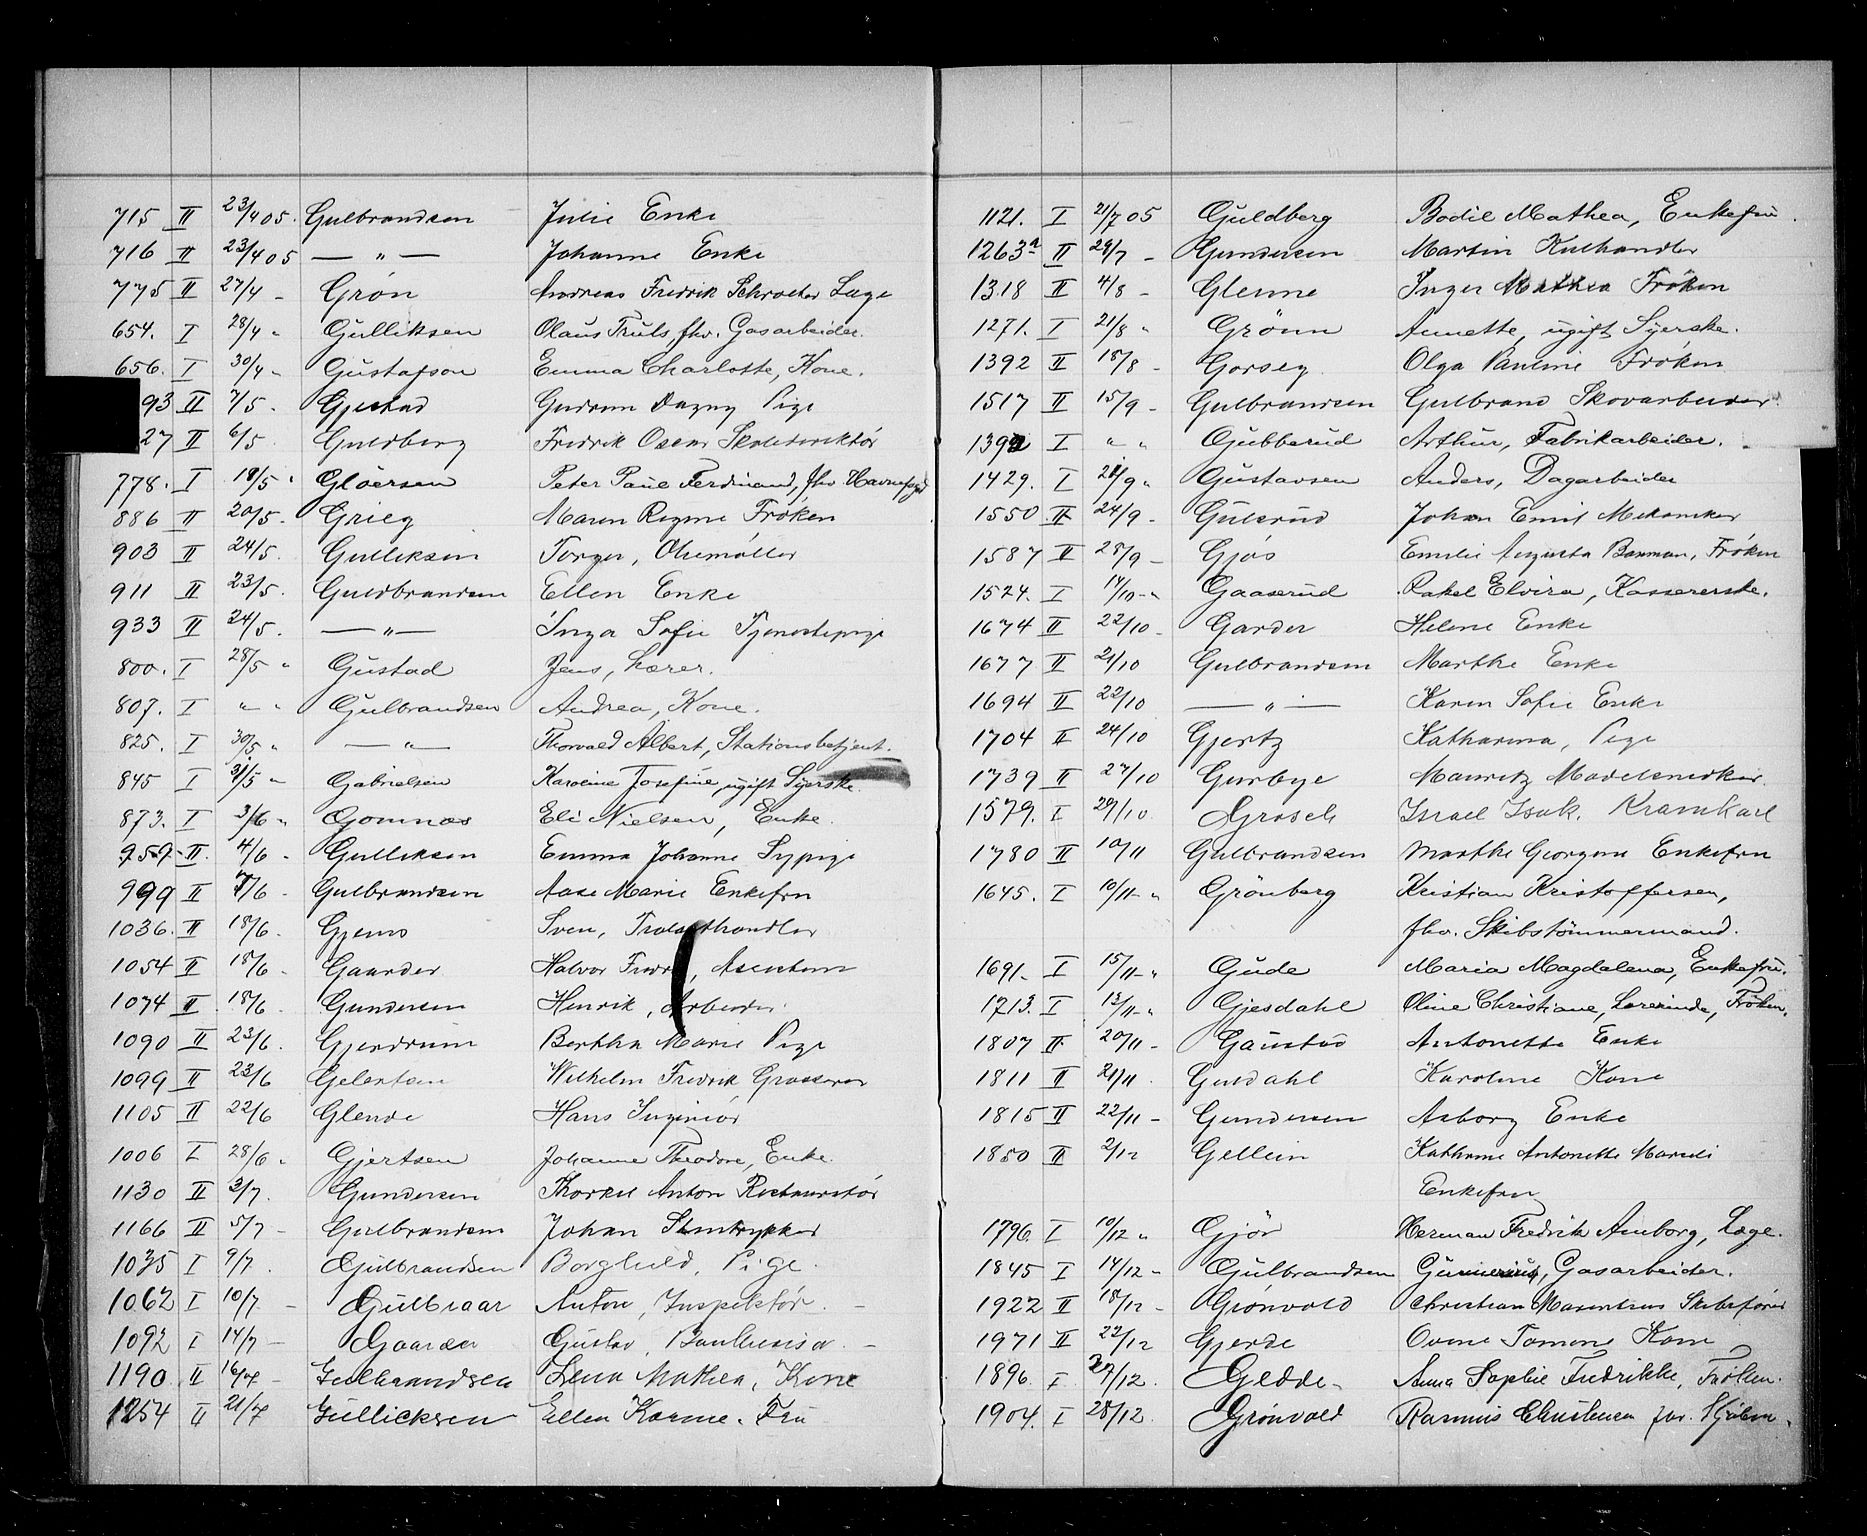 715 II 23/4 05. Gulbrandsen Julie Enke
716 II 23/4 05 — " — Johanne Enke
775 II 27/4 - Grøn Andreas Fredrik Schroeter Læge
654. I 28/4 " Gulliksen Olaus Truls, fhv. Gasarbeider.
656. I 30/4 " Gustafson Emma Charlotte, Kone.
93 II 7/5 . Gjestad Gudrun Dagny Pige
27 II 6/5 . Guldberg Fredrik Oscar Skoledirektør
778. I 18/5 " Gløersen Peter Paul Ferdinand, fhv Havnefogd
886 II 20/5 - Grieg Maren Regine Frøken
903 II 24/5 . Gulliksen Torger, Oliemøller
911 II 23/5 . Guldbrandsen Ellen Enke
933 II 24/5 . — " — Inga Sofie Tjenestepige
800. I 28/5 " Gustad Jens, Lærer.
807. I " " Gulbrandsen Andrea, Kone.
825. I 30/5 " — " — Thorvald Albert, Stationsbetjent.
845 I 31/5 " Gabrielsen Karoline Josefine, ugift Syerske.
873. I 3/6 " Gomnæs Eli Nielsen, Enke.
959 II. 4/6 - Gulliksen Emma Johanne Sypige
999 II 7/6 - Gulbrandsen Aase Marie Enkefru
1036. II 18/6 . Gjems Sven, Trælasthandler
1054 II 18/6 - Gaarder Halvor , Assistent
1074 II 18/6 . Gundersen Henrik, Arbeider
1090 II 23/6 . Gjerdrum Bertha Marie Pige
1099 II 23/6 Gelertsen Wilhelm Fredrik Grosserer
1105 II 22/6 Glende Hans Ingeniør
1006 I 28/6 " Gjertsen Johanne Theodore, Enke.
1130 II 3/7 . Gundersen Thorkel Anton Restauratør
1166 II 5/7 - Gulbrandsen Johan Stentrykker
1035 I 9/7 . Gulbrandsen Borghild, Pige.
1062 I 10/7 - Gulbraar Anton, Inspektør. -
1092 I 14/7 - Gaarder Gustav, . -
1190 II 16/7 - Gulbrandsen Lena Mathea, Kone
1254 II 21/7 Gullicksen Ellen Karine. Fru
1121. I 21/7 05 Guldberg Bodil Mathea, Enkefru.
1263a II 29/7 - Gundersen Martin Kulhandler
1318 II 4/8 - Glenne Inger Mathea Frøken
1271. I 21/8 " Grönn Annette, ugift Syerske.
1392 II 18/8 - Gorseg Olga Pauline Frøken
1517 II 15/9 - Gulbrandsen Gulbrand Skovarbeider
1392 I " " Gubberud Arthur, Fabrikarbeider.
1429. I 21/9 " Gustavsen Anders, Dagarbeider
1550 II 24/9 - Gulsrud Johan Emil Mekaniker
1587 II 28/9 - Gjøs Emilie Augusta Bauman, Frøken
1524. I 14/10 - " Gaaserud Rakel Elvira, Kassererske.
1674 II 22/10 - Garder Helene Enke
1677 II 21/10 Gulbrandsen Marthe Enke
1694 II 22/10 — " — Karen Sofie Enke
1704 II 24/10 Gjertz Katharina, Pige
1739 II 27/10 Gurbye Mauritz Modelsnedker.
1579. I 29/10 Grosch Israel Isak. Kramkarl
1780 II 10/11 Gulbrandsen Marthe Georgine Enkefru
1645. I 10/11 - " Grönberg Kristian Kristoffersen,
fhv. Skibstömmermand.
1691. I 15/11 - " Gude Maria Magdalena, Enkefru.
1713. I 13/11 - " Gjesdahl Oline Christiane, Lærerinde, Frøken.
1807 II 20/11 - Gaustad Antonette Enke
1811 II 21/11 . Guldahl Karoline Kone
1815 II 22/11 - Gundersen Asborg Enke
1850 II 2/12 Gellein Kathrine Antonette Marseli
Enkefru
1796. I 10/12 " Gjör Herman Fredrik Amborg, Læge.
1845 I 14/12 - Gulbrandsen Gunerius, Gasarbeider.
1922 II 18/12 - Grønvold Christian Maxentius Skibsfører
1971 II 22/12 Gjerde Tomine Kone
1896. I 27/12. Gedde. Anna Sophie Fredrikke, Frøken.
1904. I 28/12. Grönvold Rasmus Christensen fhv.